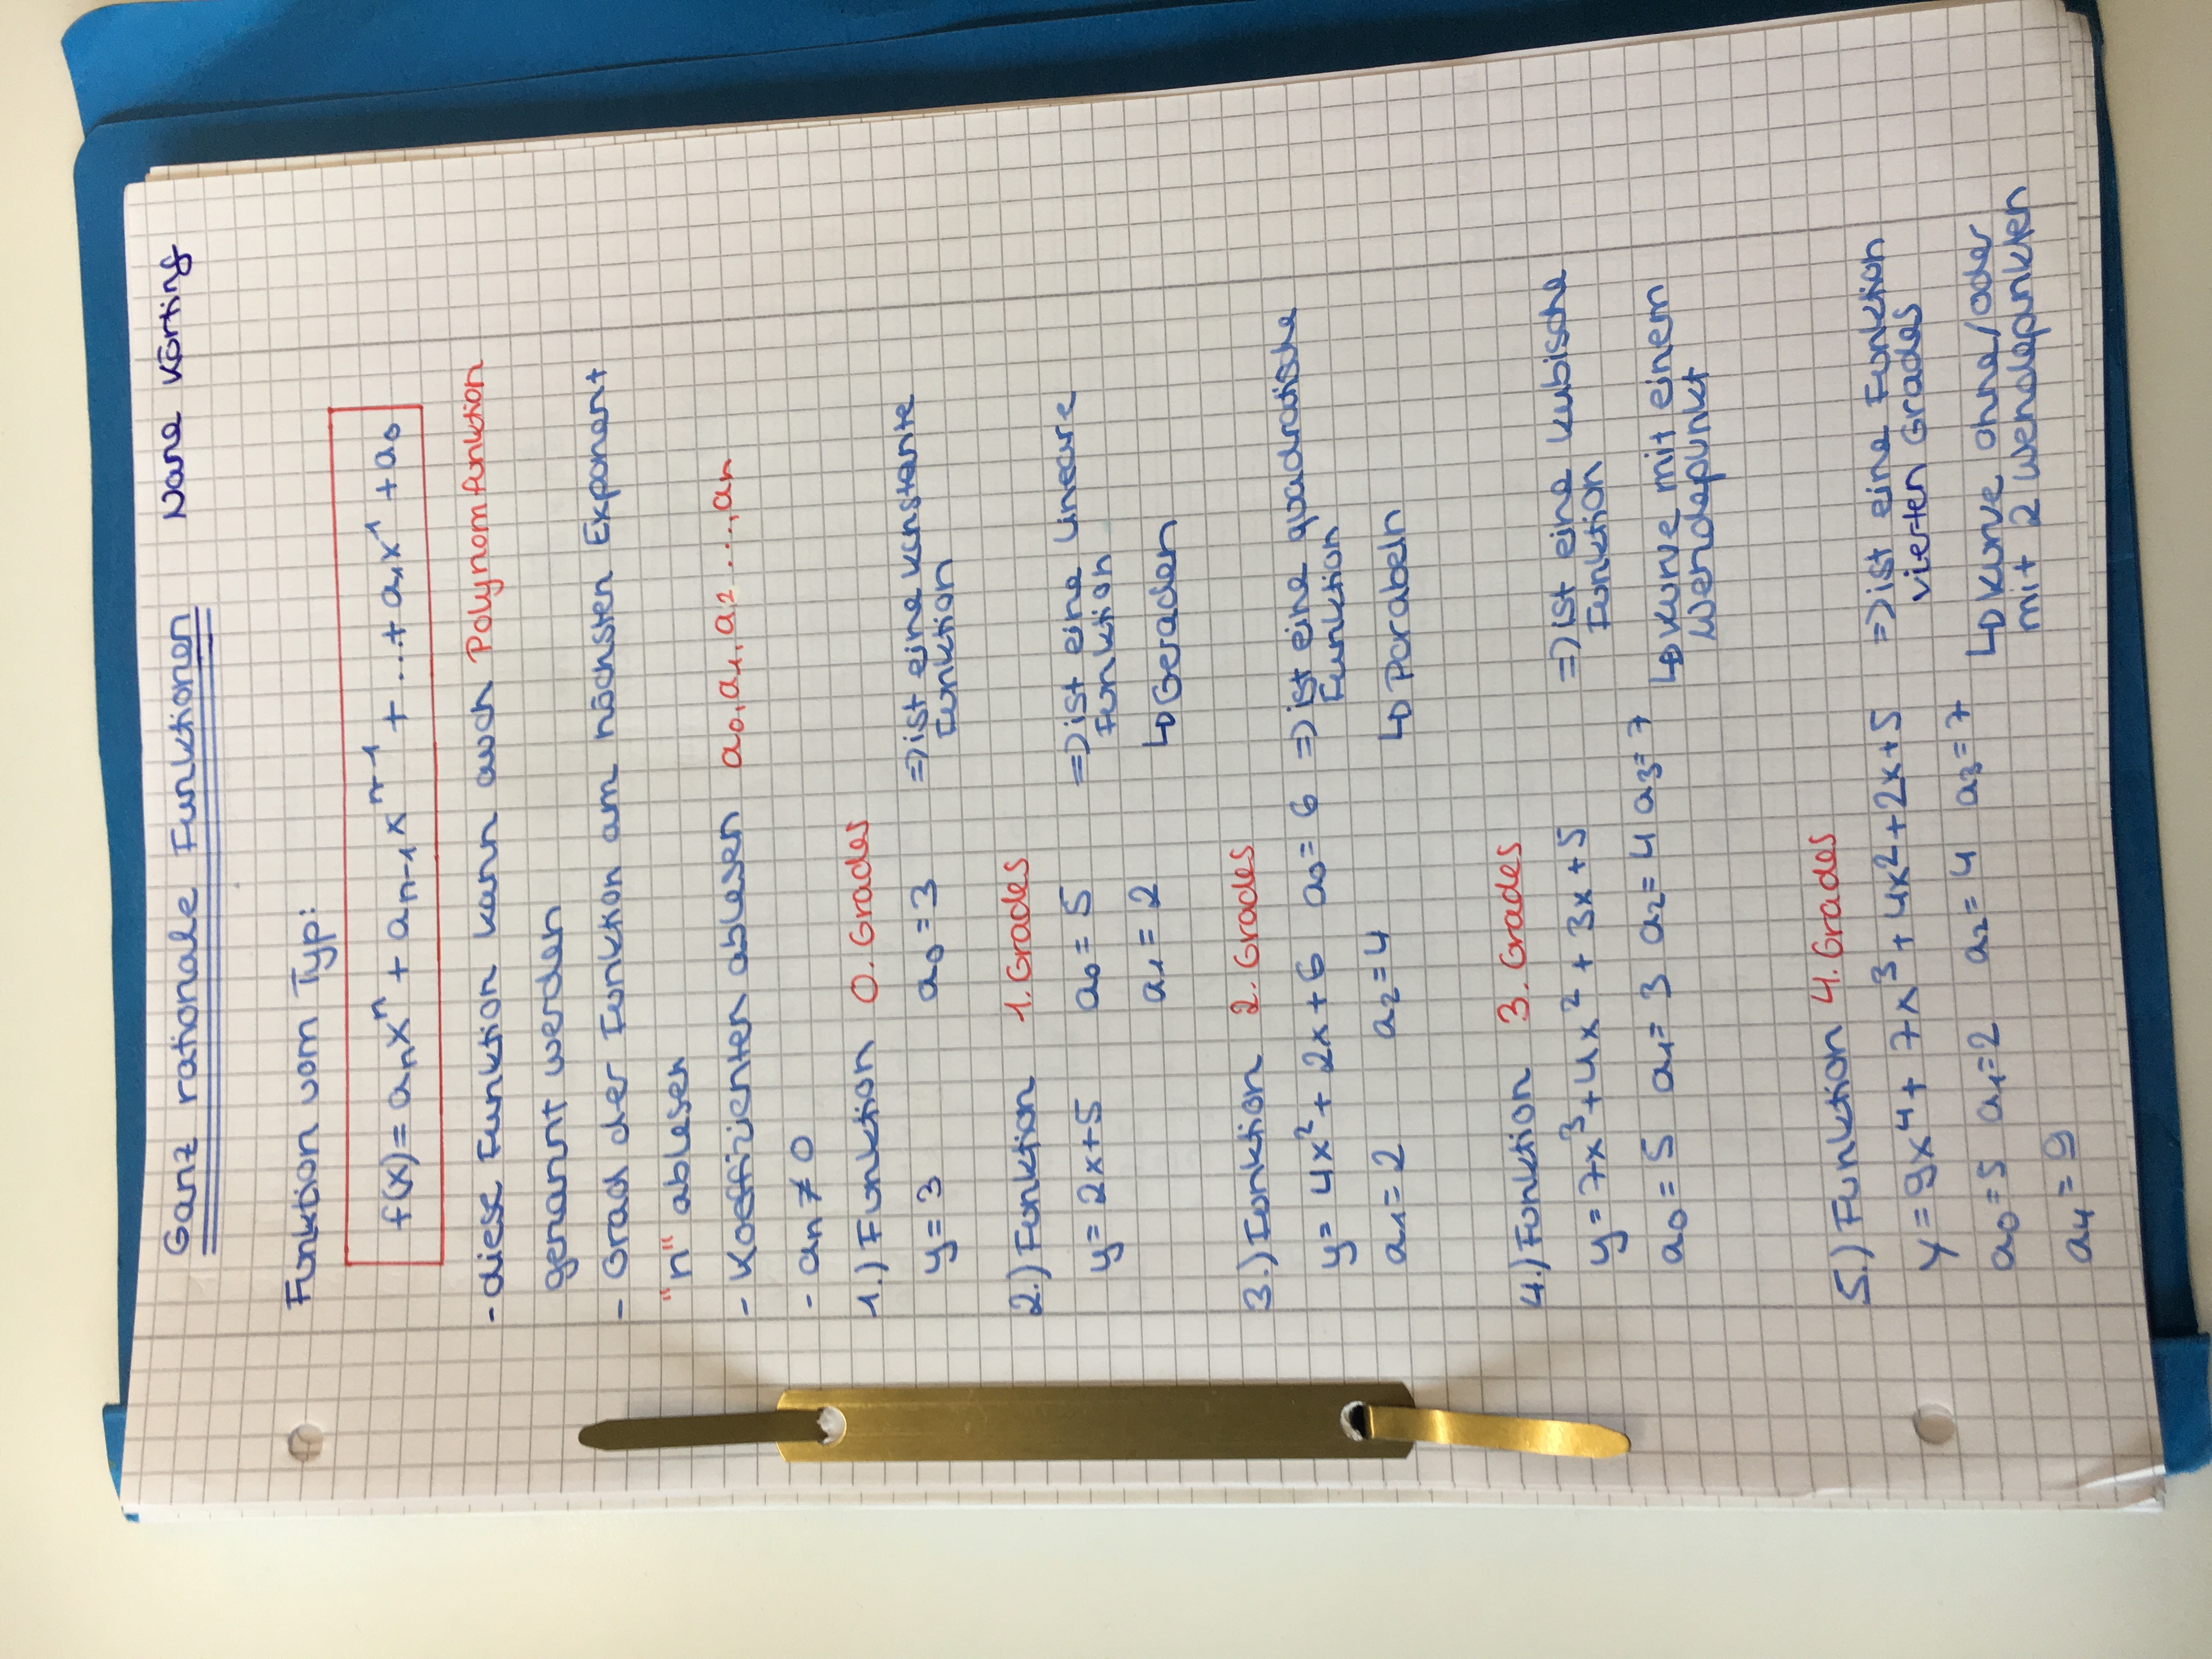 Ganz rationale Funktionen Nane Körting
Funktion vom Typ:
f(x) = aₙxⁿ + aₙ₋₁xⁿ⁻¹ + ... + a₁x¹ + a₀
- diese Funktion kann auch Polynomfunktion
genannt werden
- Grad der Funktion am höchsten Exponent
"n" ablesen
- Koeffizienten ablesen a₀, a₁, a₂ ..., aₙ
- aₙ ≠ 0
1.) Funktion 0. Grades
y = 3 a₀ = 3 => ist eine konstante
Funktion
2.) Funktion 1. Grades
y = 2x + 5 a₀ = 5 => ist eine lineare
Funktion
a₁ = 2 ↳ Geraden
3.) Funktion 2. Grades
y = 4x² + 2x + 6 a₀ = 6 => ist eine quadratische
Funktion
a₁ = 2 a₂ = 4 ↳ Parabeln
4.) Funktion 3. Grades
y = 7x³ + 4x² + 3x + 5 => ist eine kubische
Funktion
a₀ = 5 a₁ = 3 a₂ = 4 a₃ = 7 ↳ Kurve mit einem
Wendepunkt
5.) Funktion 4. Grades
y = 9x⁴ + 7x³ + 4x² + 2x + 5 => ist eine Funktion
vierten Grades
a₀ = 5 a₁ = 2 a₂ = 4 a₃ = 7 ↳ Kurve ohne/oder
mit 2 Wendepunkten
a₄ = 9